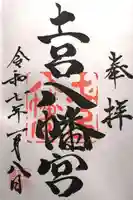 奉拝
土宮八幡宮
令和七年一月八日